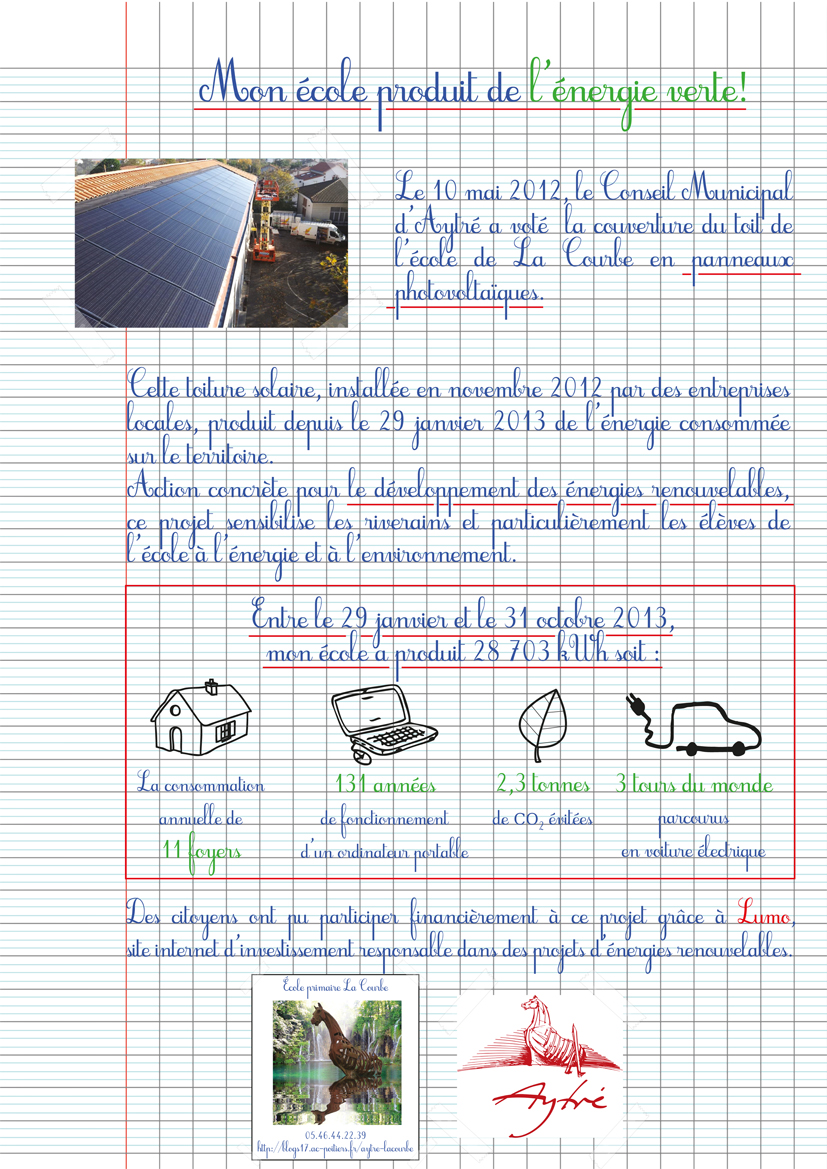 Mon école produit de l'énergie verte!
Le 10 mai 2012, le Conseil Municipal
d'Aytré a voté la couverture du toit de
l'école de La Courbe en panneaux
photovoltaïques.
Cette toiture solaire, installée en novembre 2012 par des entreprises
locales, produit depuis le 29 janvier 2013 de l'énergie consommée
sur le territoire.
Action concrète pour le développement des énergies renouvelables,
ce projet sensibilise les riverains et particulièrement les élèves de
l'école à l'énergie et à l'environnement.
Entre le 29 janvier et le 31 octobre 2013,
mon école a produit 28 703 kWh soit :
La consommation
annuelle de
11 foyers
131 années
de fonctionnement
d'un ordinateur portable
2,3 tonnes
de CO₂ évitées
3 tours du monde
parcourus
en voiture électrique
Des citoyens ont pu participer financièrement à ce projet grâce à Lumo,
site internet d'investissement responsable dans des projets d'énergies renouvelables.
École primaire La Courbe
05.46.44.22.39
http://blogs17.ac-poitiers.fr/aytre-lacourbe
Aytré